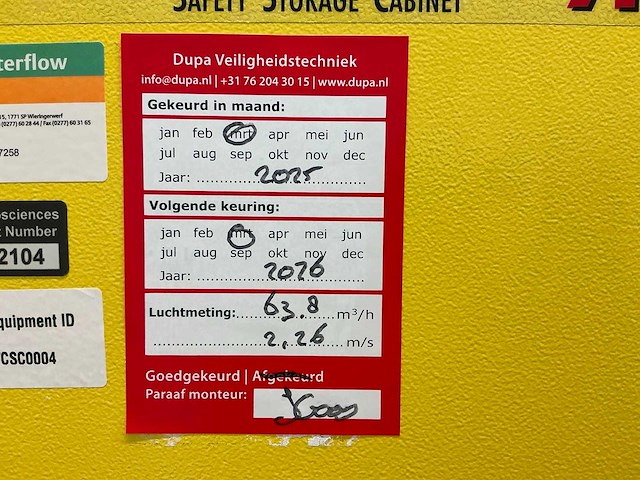 SAFETY STORAGE CABINET
terflow
5, 1771 SP Wieringerwerf
(0277) 60 28 44 / Fax (0277) 60 31 65
7258
osciences
t Number
2104
quipment ID
CSC0004
Dupa Veiligheidstechniek
info@dupa.nl | +31 76 204 30 15 | www.dupa.nl
Gekeurd in maand:
jan feb mrt apr mei jun
jul aug sep okt nov dec
Jaar: 2025
Volgende keuring:
jan feb mrt apr mei jun
jul aug sep okt nov dec
Jaar: 2026
Luchtmeting: 63.8 m³/h
2,26 m/s
Goedgekeurd | Afgekeurd
Paraaf monteur: